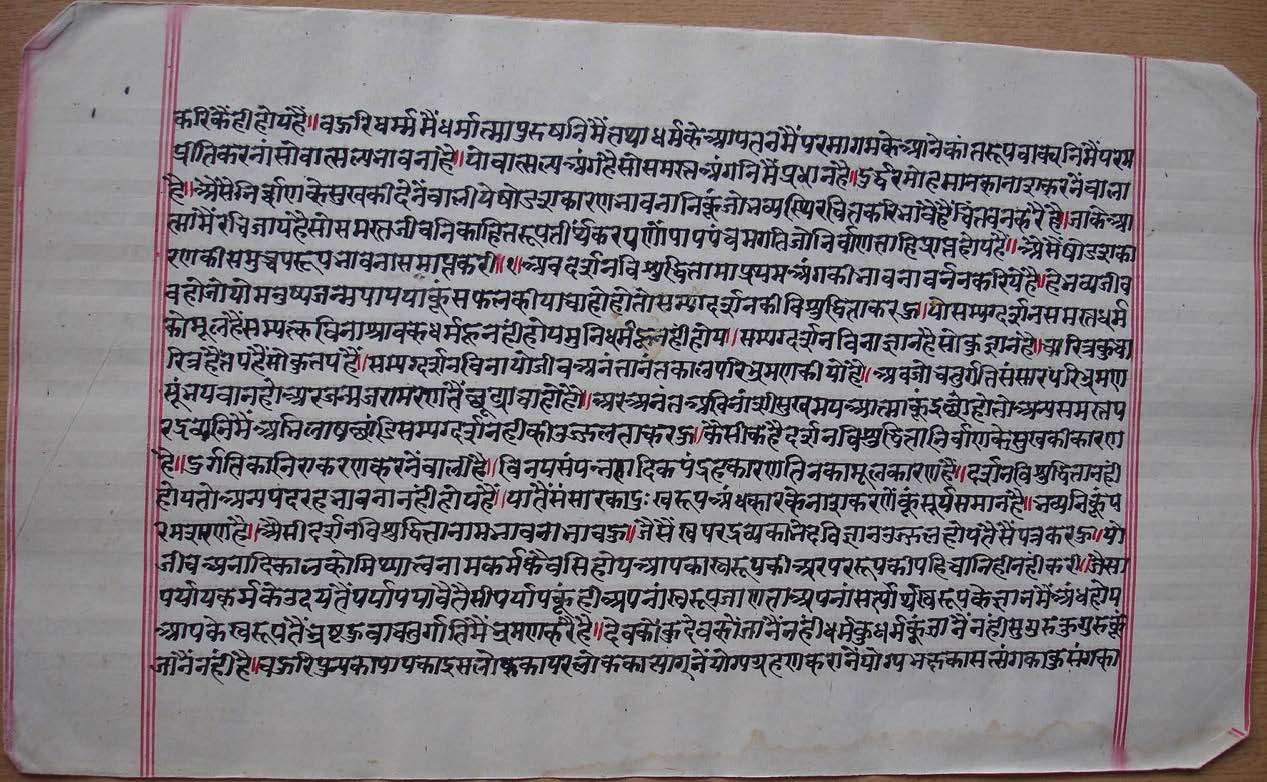 करिकैंही होय है॥ बहुरि धर्म्म मैं धर्मात्मा पुरुषनि मैं तथा धर्म के आयतन मैं परमागम के अनेकांतरूप वाक्यनि मैं परम
प्रीति करनां सो वात्सल्य भावनां है॥ यो वात्सल्य अंग है सो समस्त अंगनि मैं प्रधान है॥ दुर्द्धर मोह मान का नाश करनें वाला
है॥ अैसे निर्वाण के सुख की देनें वाली ये षोडशकारण भावनानिकूं जो भव्य स्थिरचित्त करि भावै है चिंतवन करै है॥ जाके आ
त्मां मैं रचि जाय है सो समस्त जीवनि का हित रूप तीर्थंकर पणों पाय पंचम गति जो निर्वाण ताहि प्राप्त होय है॥ अैसे षोडशका
रण की समुच्चय रूप भावना समाप्त करी॥१॥ अब दर्शनविशुद्धि नामा प्रथम अंग की भावना वर्नन करिये है॥ हे भव्य जीव
व हो जो यो मनुष्य जन्म पाय याकूं सफल कीया चाहो हो तो सम्यग्दर्शन की विशुद्धिता करहु॥ यो सम्यग्दर्शन समस्त धर्म
को मूल है॥ सम्यक्त विना श्रावक धर्म हू नहीं होय मुनि धर्म हू नहीं होय॥ सम्यग्दर्शन विना ज्ञान है सो कुज्ञान है॥ चारित्र कुचा
रित्र है॥ तप है सो कुतप है॥ सम्यग्दर्शन विना यो जीव अनंतानंत काल परिभ्रमण कीयो है॥ अब जो चतुर्गति संसार परिभ्रमण
सूं भयवान हो अर जन्म जरा मरण तैं छूट्या चाहो हो॥ अर अनंत अविनाशी सुखमय आत्मा कूं इच्छो हो तो अन्य समस्त प
रद्रव्यनि मैं अभिलाष छांडि सम्यग्दर्शन ही की उज्जलता करहु॥ कैसीक है दर्शनविशुद्धिता निर्वाण के सुख की कारण
है॥ दुर्गति का निराकरण करनें वाली है॥ विनयसंपन्नतादिक पंद्रह कारण तिनका मूल कारण है॥ दर्शनविशुद्धिता नहीं
होय तो अन्य पंदरह भावना नहीं होय है॥ यातैं संसार का दुःख रूप अंधकार के नाश करणें कूं सूर्य समान है॥ भव्यनि कूं प
रम शरण है॥ अैसी दर्शनविशुद्धिता नाम भावना भावहु॥ जैसे स्वपर द्रव्य का भेद विज्ञान उज्जल होय तैसैं यत्न करहु॥ यो
जीव अनादि काल को मिथ्यात्व नाम कर्म के वसि होय आपका स्वरूप की अर पर रूप की पहिचानि ही नहीं करी॥ जैसा
पर्याय कर्म के उदय तैं पर्याय पावै तैसी पर्याय कूं ही अपनां स्वरूप जाणता अपनां सत्यार्थ स्वरूप के ज्ञान मैं अंध होय
आप के स्वरूप तैं भ्रष्ट हुवा चतुर्गति मैं भ्रमण करै है॥ देव कौं कुदेव कौं जानैं नहीं धर्म कुधर्म कूं जानैं नहीं सुगुरु कुगुरु कूं
जानैं नहीं है॥ बहुरि पुन्य का पाप का इस लोक का परलोक का त्यागनें योग्य ग्रहण करनें योग्य भक्ष का सत्संग का कुसंग का